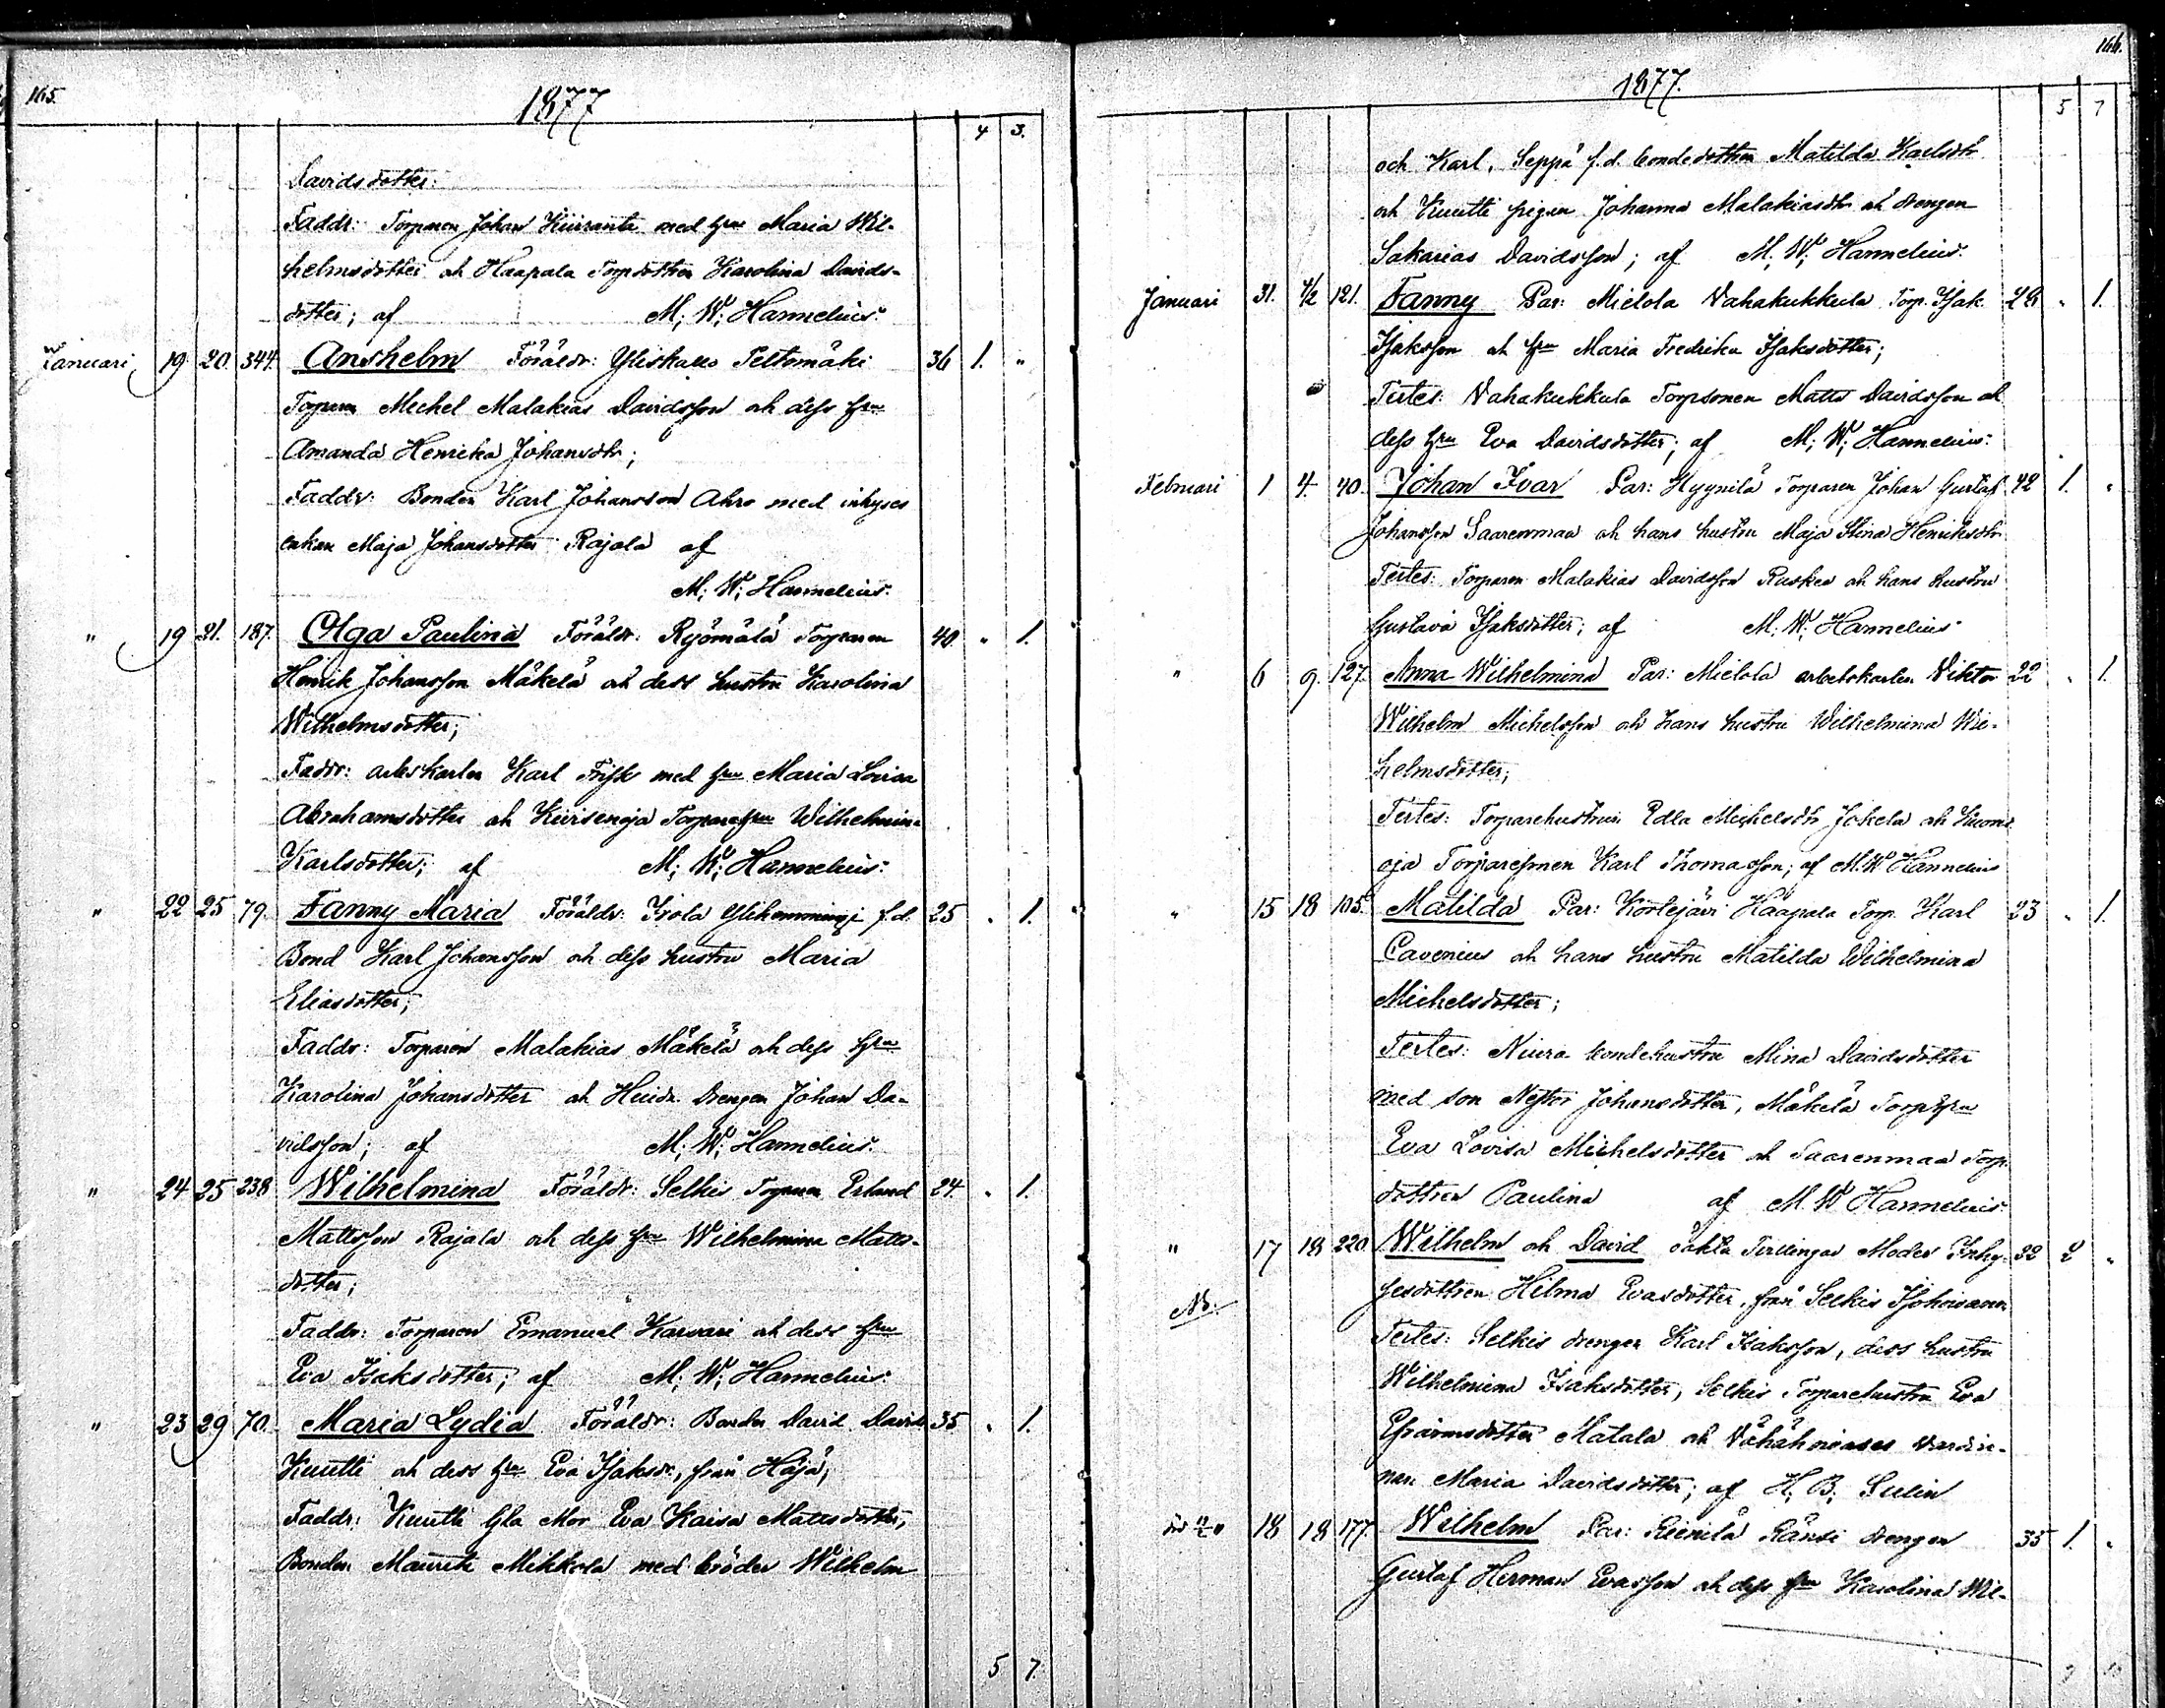 165.
1877
4 3.
Davidsdotter.
Faddr: Torparen Johan Kiviranta med hru Maria Wil-
helmsdotter och Haapala Torpdottren Karolina Davids-
dotter; af M; W; Hannelius.
Januari 19 20. 344. Anshelm Föräldr: Yliskallo Peltomäki 36 1. "
Torparen Michel Malakias Davidsson och dess hru
Amanda Henrika Johansdr;
Faddr: Bonden Karl Johansson Ahro med inhyses
enkan Maja Johansdotter Rajala af
M; W; Hannelius.
" 19 21. 187. Olga Paulina Föräldr: Ryömälä Torparen 40. " 1.
Henrik Johansson Mäkelä och dess hustru Karolina
Wilhelmsdotter;
Faddr: arbskarlen Karl Frisk med hru Maria Lovisa
Abrahamsdotter och Torparehru Wilhelmina
Karlsdotter; af M; W; Hannelius.
" 22 25 79. Fanny Maria Föräldr: Isola Ylihemmingi f.d. 25 " 1.
Bond Karl Johansson och dess hustru Maria
Eliasdotter;
Faddr: Torparen Malakias Mäkelä och dess hru
Karolina Johansdotter och Drengen Johan Da-
nielsson; af M; W; Hannelius.
" 24 25 238 Wilhelmina Föräldr: Selkis Torparen Erland 24. " 1.
Mattsson Rajala och dess hru Wilhelmina Matts-
dotter;
Faddr: Torparen Emanuel Karvari och dess hru
Eva Isaksdotter; af M; W; Hannelius.
" 23 29 70. Maria Lydia Föräldr: Bonden David Davids 35 " 1.
Knutti och dess hru Eva Isaksdr, från Höjä;
Faddr: Knutti Gla Mor Eva Kaisa Mattsdotter,
Bonden Maurits Mikkola med bröder Wilhelm
5 7.
166.
1877.
5 7
och Karl, Seppä f.d. bondedottren Matilda Karlsdr
och Knutti pigan Johanna Malakiasdr och drengen
Sakarias Davidsson; af M; W; Hannelius.
Januari 31. 4/2 121. Fanny Par: Mielola Vahakukkula Torp. Isak 28 " 1.
Isaksson och hru Maria Fredrika Isaksdotter;
Testes: Vahakukkula Torpsonen Matts Davidsson och
dess hru Eva Davidsdotter; af M; W; Hannelius.
Februari 1 4. 40. Johan Ivar Par: Hyynilä Torparen Johan Gustaf 42 1. "
Johansson Saarenmaa och hans hustru Maja Stina Henriksdr
Testes: Torparen Malakias Davidsson Ruskea och hans hustru
Gustava Isaksdotter; af M; W; Hannelius
" 6 9. 127. Anna Wilhelmina Par: Mielola arbetskarlen Viktor 22 " 1.
Wilhelm Michelsson och hans hustru Wilhelmina Wil-
helmsdotter;
Testes: Torparehustrun Edla Michelsdr Jokela och Kuoms
oja Torparesonen Karl Thomasson; af M. W Hannelius
" 15 18 105. Matilda Par: Körtejärvi Haapala Torp. Karl 23 " 1.
Cavenius och hans hustru Matilda Wilhelmina
Michelsdotter;
Testes: Niura bondehustru Mina Davidsdotter
med son Nestor Johansdotter, Mäkelä Torphru
Eva Lovisa Michelsdotter och Saarenmaa Torp
dottren Paulina af M. W Hannelius.
" 17 18 220 Wilhelm och David oäkta Tvillingar Moder Inhy- 22 2 "
Nb. sesdottren Hilma Evasdotter, från Selkis
Testes: Selkis drengen Karl Isaksson, dess hustru
Wilhelmina Isaksdotter, Selkis Torparehustru Eva
Efraimsdotter Matala och värdin-
nan Maria Davidsdotter; af H; B; Sulin
18 18 177. Wilhelm Par: Rienilä Ränsi drengen 35 1. "
Gustaf Herman Evasson och dess hru Karolina Wil-